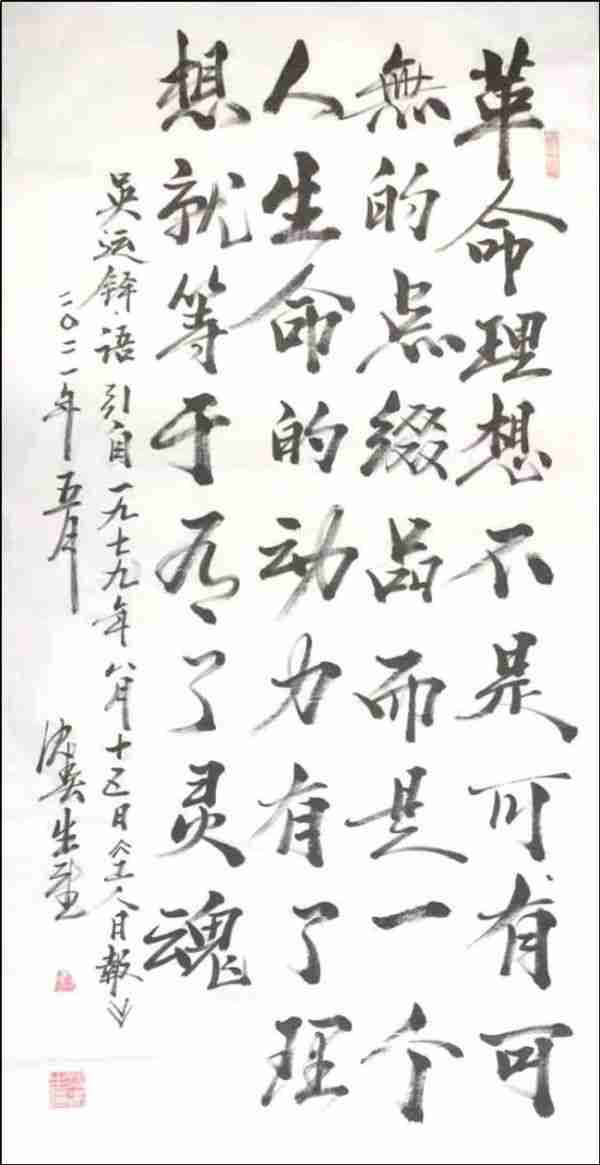 革命理想不是可有可
無的点缀品而是一个
人生命的动力有了理
想就等于有了灵魂
吴运铎语 引自一九七九年八月十五日《工人日報》
二〇二一年五月 生